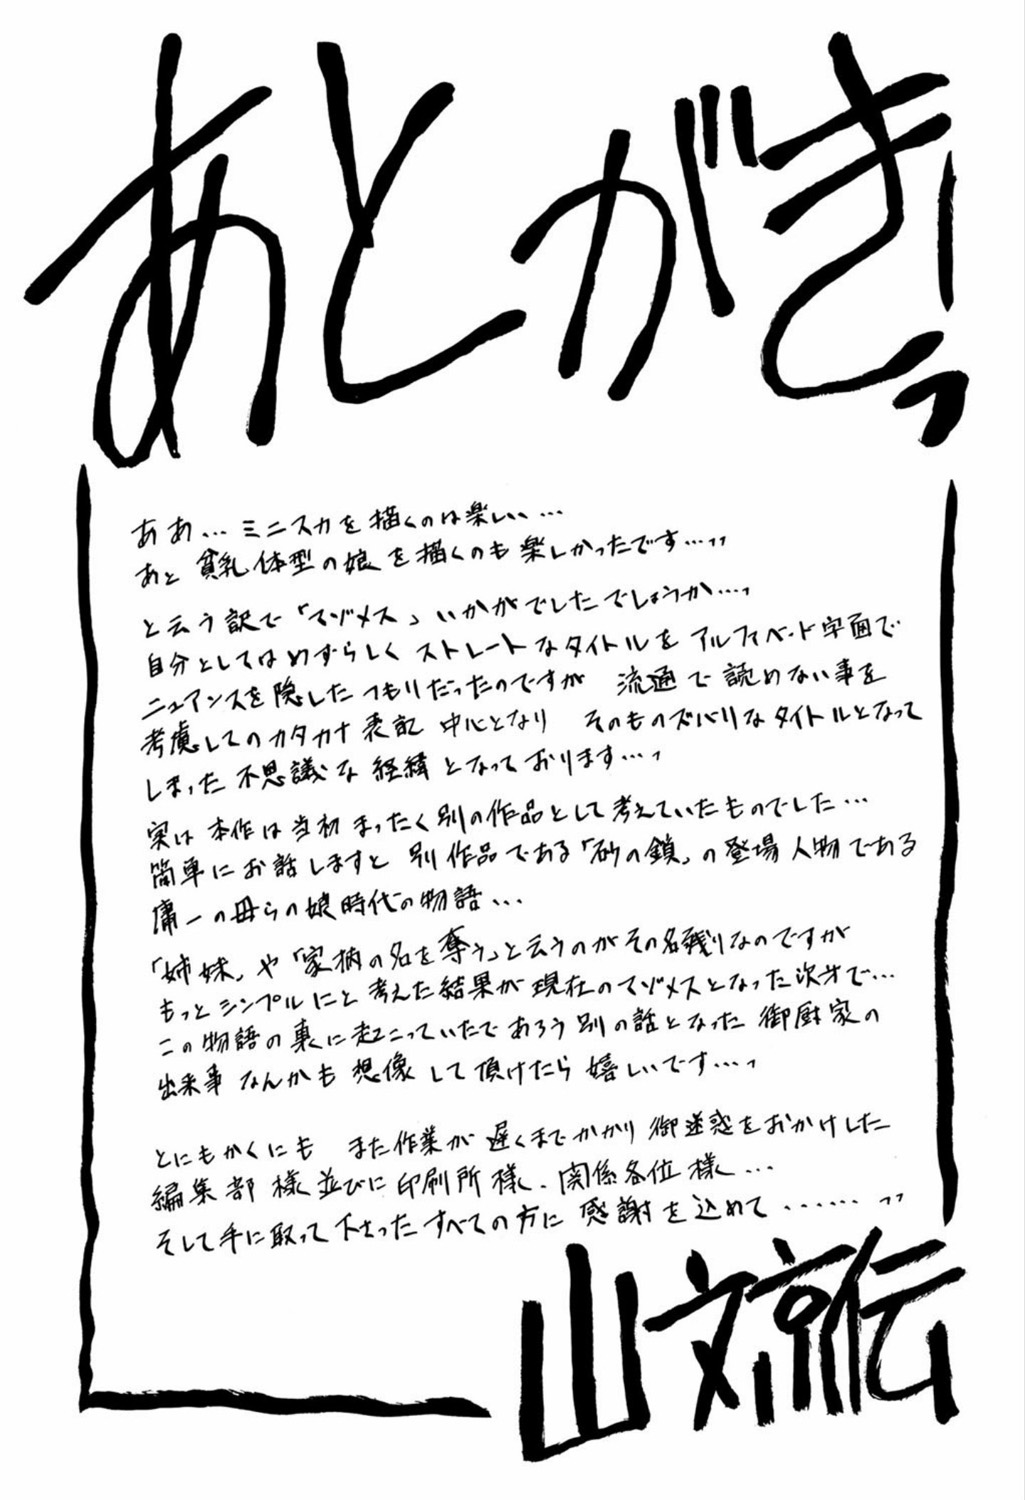 あとがきっ!
ああ…ミニスカを描くのは楽しい…
あと 貧乳体型の娘を描くのも楽しかったです…,,
と云う訳で「マゾメス」いかがでしたでしょうか…,
自分としてはめずらしくストレートなタイトルを アルファベット字面で
ニュアンスを隠したつもりだったのですが 流通で読めない事を
考慮してのカタカナ表記 中心となり そのものズバリなタイトルとなって
しまった不思議な経緯となっております…,
実は本作は当初まったく別の作品として考えていたものでした…
簡単にお話しますと 別作品である「砂の鎖」の登場人物である
庸一の母らの娘時代の物語…
「姉妹」や「家柄の名を奪う」と云うのがその名残りなのですが
もっとシンプルにと考えた結果が現在のマゾメスとなった次才で…
この物語の裏に起こっていたであろう別の話となった御厨家の
出来事なんかも想像して頂けたら嬉しいです…,
とにもかくにも また作業が遅くまでかかり御迷惑をおかけした
編集部様並びに印刷所様、関係各位様…
そして手に取って下さったすべての方に感謝を込めて……,,
山文京伝